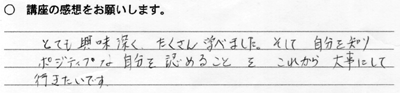 ○ 講座の感想をお願いします。
とても興味深く、たくさん学べました。そして自分を知り
ポジティブな自分を認めることをこれから大事にして
行きたいです。